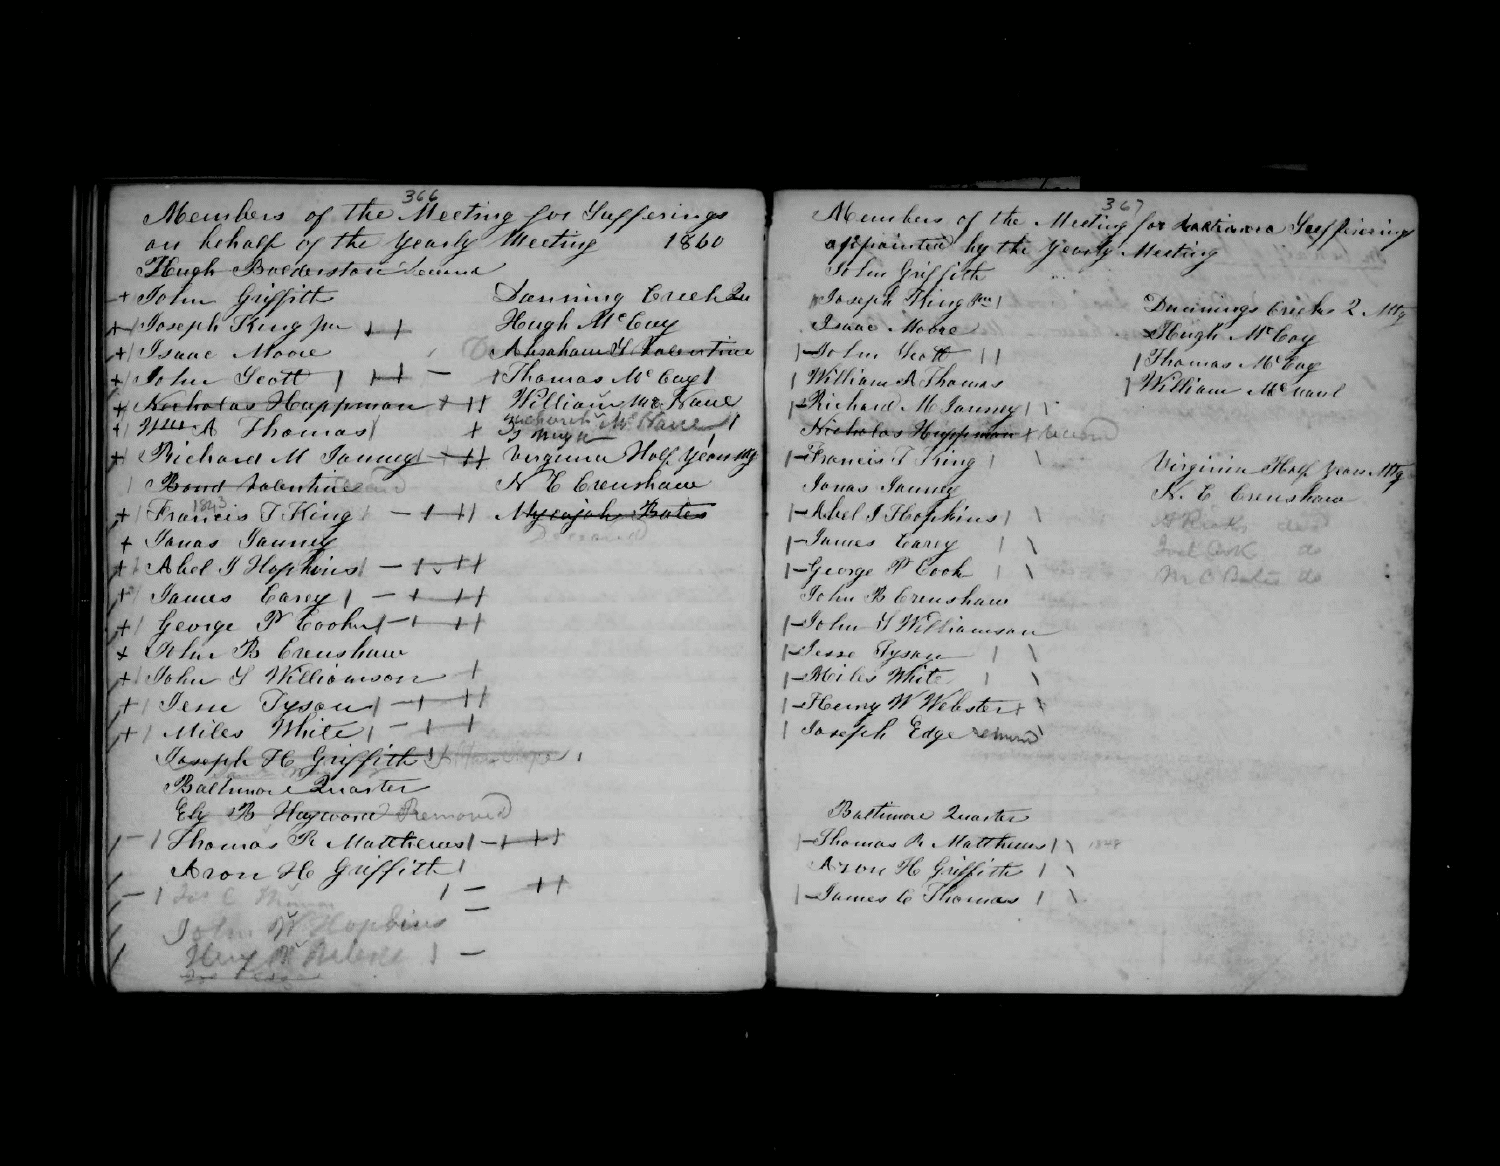 366
Members of the Meeting for Sufferings
on behalf of the Yearly Meeting 1860
Hugh Balderston
John Griffith
Joseph King Jun
Isaac Moore
John Scott
Nicholas Huppman
A Thomas
Richard M Janney
Bond Valentine
1843
Francis T King
Janas Janney
Abel J Hopkins
James Carey
George P Cook
John B Crenshaw
John S Williamson
Jesse Tyson
Miles White
Joseph H Griffith
Baltimore Quarter
Ely B Haywood Removed
Thomas R Matthews
Aron H Griffith
Jas C Thomas
John W Hopkins
Dunning Creek Qu
Hugh McCoy
Abraham Valentine
Thomas McCoy
William
Virginia Half Years Mtg
N C Crenshaw
Mycajah Bates
Deceased
367
Members of the Meeting for Sufferings
appointed by the Yearly Meeting
John Griffith
Joseph King Jun
Isaac Moore
John Scott
William A Thomas
Richard M Janney
Nicholas Huppman
Francis T King
Janas Janney
Abel J Hopkins
James Carey
George P Cook
John B Crenshaw
John S Williamson
Jesse Tyson
Miles White
Henry W Webster
Joseph Edge removed
Baltimore Quarter
Thomas R Matthews
Aron H Griffith
James C Thomas
Dunnings Creeks 2 Mtg
Hugh McCoy
Thomas McCoy
William
Virginia Half Years Mtg
N. C Crenshaw
M C Bates do